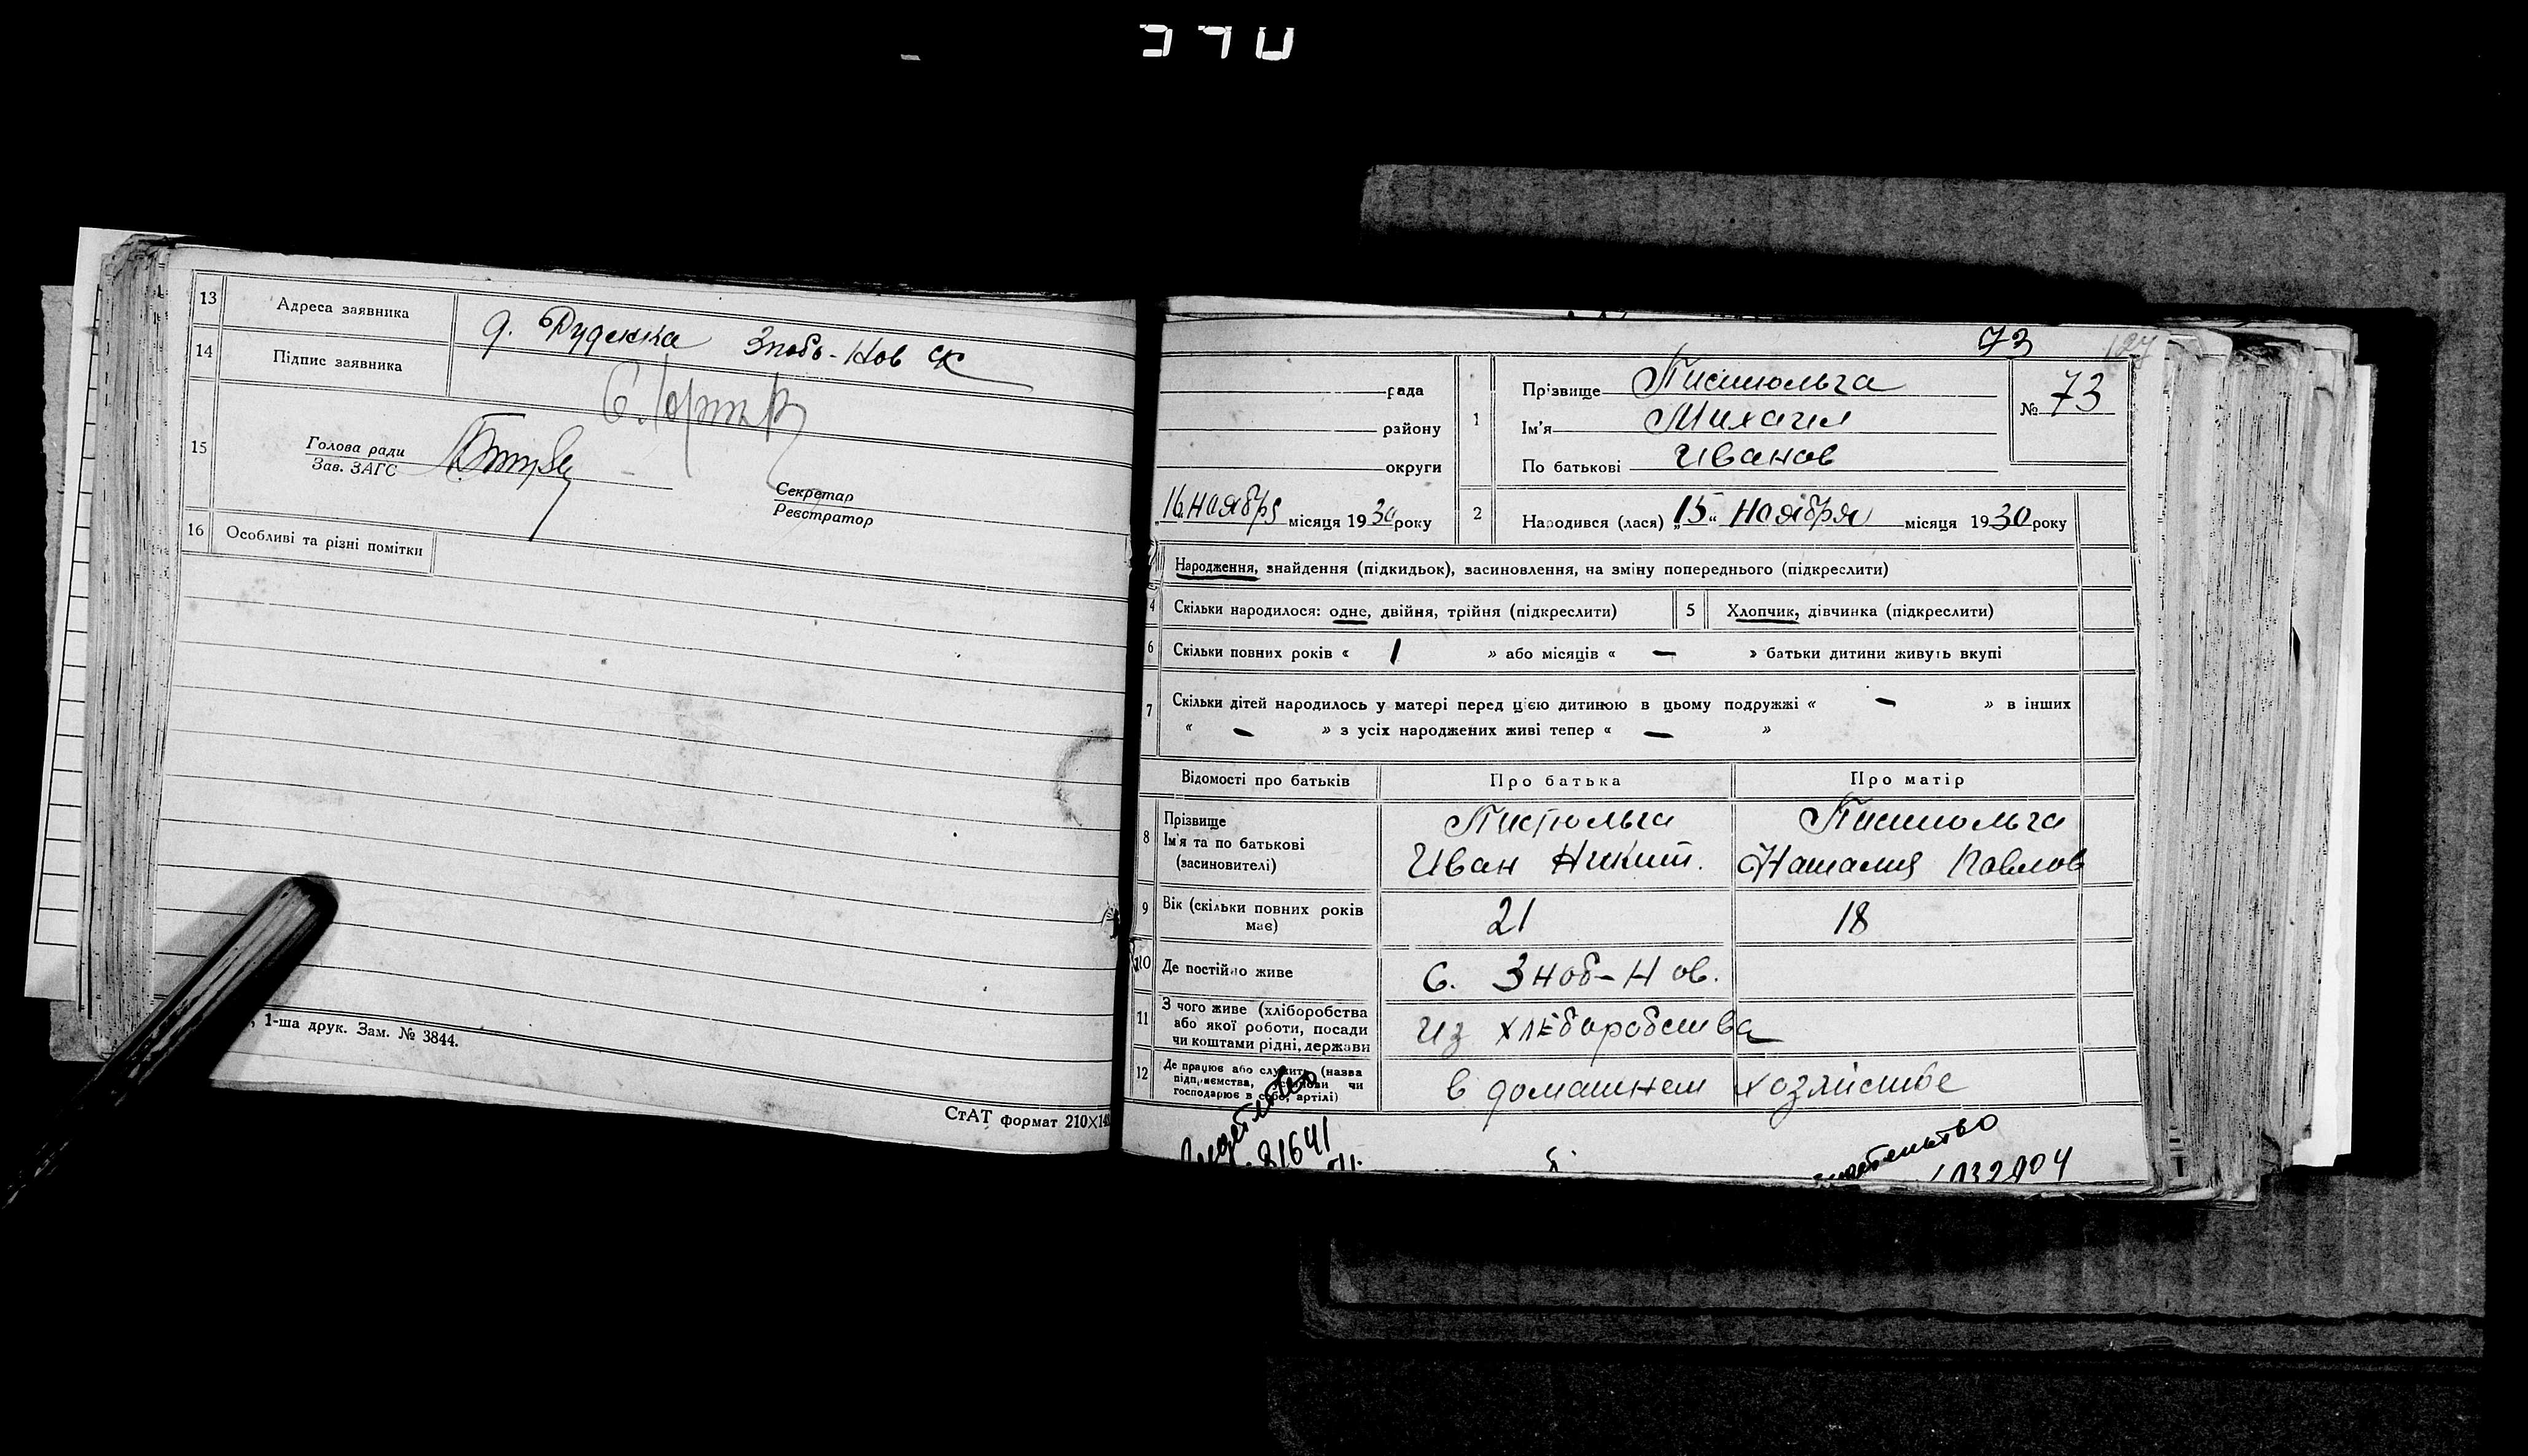 13 Адреса заявника д. Рудекка Знобь-Нов ск
14 Підпис заявника
15 Голова ради
Зав. ЗАГС
Секретар
Реєстратор
16 Особливі та різні помітки
1-ша друк. Зам. № 3844.
СтАТ формат 210×14
73
127
рада
району
округи
16 ноября місяця 1930 року
1 Прізвище Пистюльга
Ім'я Михаил
По батькові Иванов
№ 73
2 Народився (лася) „15“ Ноября місяця 1930 року
Народження, знайдення (підкидьок), засиновлення, на зміну попереднього (підкреслити)
4 Скільки народилося: одне, двійня, трійня (підкреслити) 5 Хлопчик, дівчинка (підкреслити)
6 Скільки повних років « 1 » або місяців « — » батьки дитини живуть вкупі
7 Скільки дітей народилось у матері перед цією дитиною в цьому подружжі « — » в інших
« — » з усіх народжених живі тепер « — »
Відомості про батьків Про батька Про матір
8 Прізвище Пистюльга Пистюльга
Ім'я та по батькові Иван Никит. Наталия Павлов
(засиновителі)
9 Вік (скільки повних років має) 21 18
10 Де постійно живе С. Зноб-Нов.
11 З чого живе (хліборобства
або якої роботи, посади
чи коштами рідні, держави из хлеборобства
12 Де працює або служить (назва
підприємства, установи чи
господарює в собі, артілі) в домашнем хозяйстве
81641